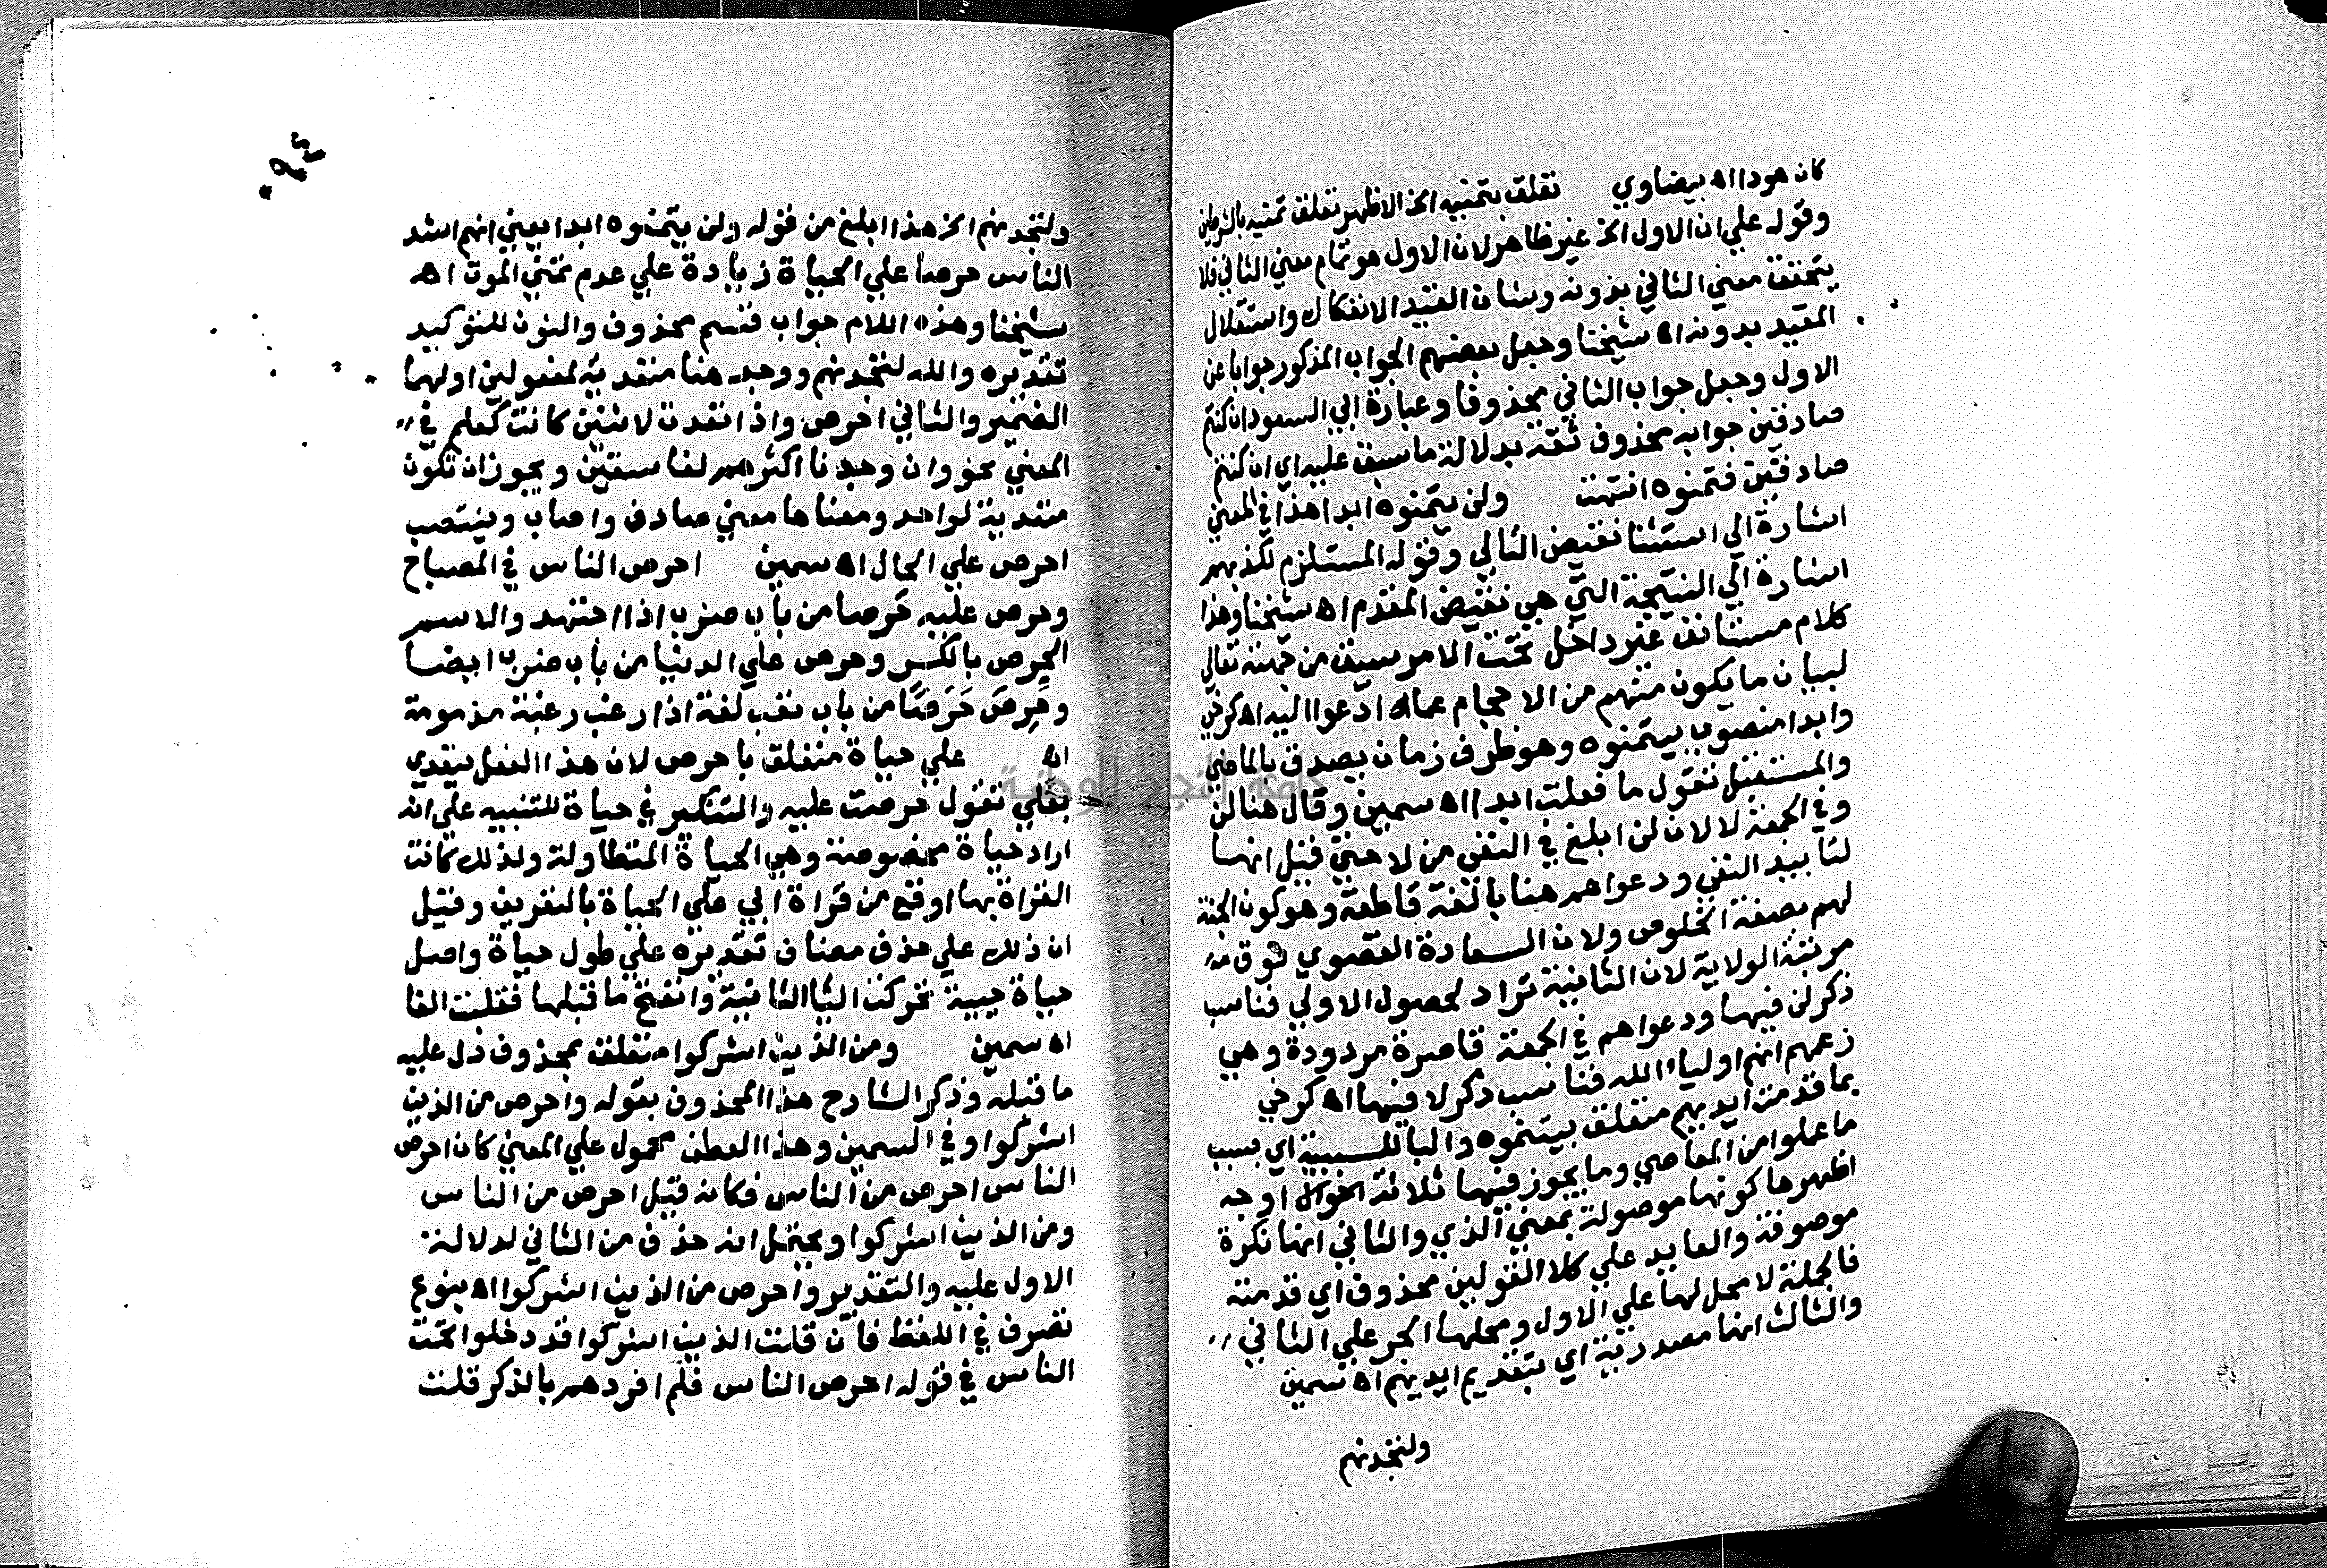 كان هودا اه بيضاوي تعلق بتمنيه الخ الاظهر تعلق تمنيه بالشرطين
وقوله علي ان الاول الخ غير ظاهر لان الاول هو تمام معني الثاني فلا
يتحقق معني الثاني بدونه وشان القيد الانفكاك واستقلال
المقيد بدونه اه شيخنا وجعل بعضهم الجواب المذكور جوابا عن
الاول وجعل جواب الثاني محذوفا وعبارة ابي السعود ان كنتم
صادقين جوابه محذوف ثقة بدلالة ما سبق عليه اي ان كنتم
صادقين فتمنوه انتهت ولن يتمنوه ابدا هذا في المعني
اشارة الي استثنا نقيض التالي وقوله المستلزم لكذبهم
اشارة الي النتيجة التي هي نقيض المقدم اه شيخنا وهذا
كلام مستانف غير داخل تحت الامر سيق من جهته تعالي
لبيان ما يكون منهم من الاحجام عما ادعوا اليه اه كرخي
وابدا منصوب بيتمنوه وهو ظرف زمان يصدق بالماضي
والمستقبل تقول ما فعلت ابدا اه سمين وقال هنا لن
وفي الجمعة لا لان لن ابلغ في النفي من لا حتي قيل انها
لتابيد النفي ودعواهم هنا بالغة قاطعة وهو كون الجنة
لهم بصفة الخلوص ولان السعادة القصوي فوق
مرتبة الولاية لان الثانية تراد لحصول الاولي فناسب
ذكر لن فيها ودعواهم في الجمعة قاصرة مردودة وهي
زعمهم انهم اولياء الله فناسب ذكر لا فيها اه كرخي
بما قدمت ايديهم متعلق بيتمنوه والبا للسببية اي بسبب
ما عملوا من المعاصي وما يجوز فيها ثلاثة اوجه
اظهرها كونها موصولة بمعني الذي والثاني انها نكرة
موصوفة والعايد علي كلا القولين محذوف اي قدمته
فالجملة لا محل لها علي الاول ومحلها الجر علي الثاني
والثالث انها مصدرية اي بتقديم ايديهم اه سمين
ولتجدنهم
ولتجدنهم الخ هذا ابلغ من قوله ولن يتمنوه ابدا يعني انهم اشد
الناس حرصا علي الحياة زيادة علي عدم تمني الموت اه
شيخنا وهذه اللام جواب قسم محذوف والنون للتوكيد
تقديره والله لتجدنهم ووجد هنا متعدية لمفعولين اولهما
الضمير والثاني احرص واذا تعدت لاثنين كانت كعلم في
المعني نحو وان وجدنا اكثرهم لفاسقين ويجوز ان تكون
متعدية لواحد ومعناها معني صادف واصاب وينتصب
احرص علي الحال اه سمين احرص الناس في المصباح
وحرص عليه حرصا من باب ضرب اذا اجتهد والاسم
الحرص بالكسر وحرص علي الدنيا من باب ضرب ايضا
وحَرِصَ حَرَصًا من باب تعب لغة اذا رغب رغبة مذمومة
اه علي حياة متعلق باحرص لان هذا الفعل يتعدي
بعلي تقول حرصت عليه والتنكير في حياة للتنبيه علي انه
اراد حياة مخصوصة وهي الحياة المتطاولة ولذلك كانت
القراة بها اوقع من قراة ابي علي الحياة بالتعريف وقيل
ان ذلك علي حذف مضاف تقديره علي طول حياة واصل
حياة حيية تحركت اليا الثانية وانفتح ما قبلها فقلبت الفا
اه سمين ومن الذين اشركوا متعلق بمحذوف دل عليه
ما قبله وذكر الشارح هذا المحذوف بقوله واحرص من الذين
اشركوا وفي السمين وهذا العطف محمول علي المعني كان احرص
الناس احرص من الناس فكانه قيل احرص من الناس
ومن الذين اشركوا ويحتمل انه حذف من الثاني لدلالة
الاول عليه والتقدير واحرص من الذين اشركوا اه بنوع
تصرف في اللفظ فان قلت الذين اشركوا قد دخلوا تحت
الناس في قوله احرص الناس فلم افردهم بالذكر قلت
جامعة النجاح الوطنية